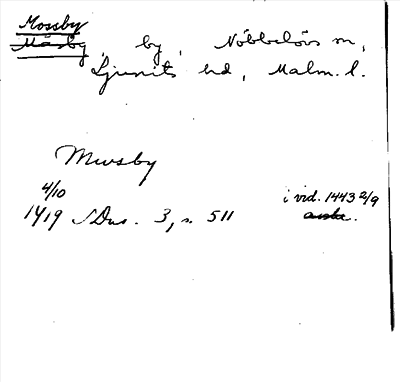 Mossby
Måsby, by, Nöbbelövs sn,
Ljunits hd, Malm. l.
Mwsby
4/10
1419 SDns. 3, s. 511
i vid. 1443 2/9